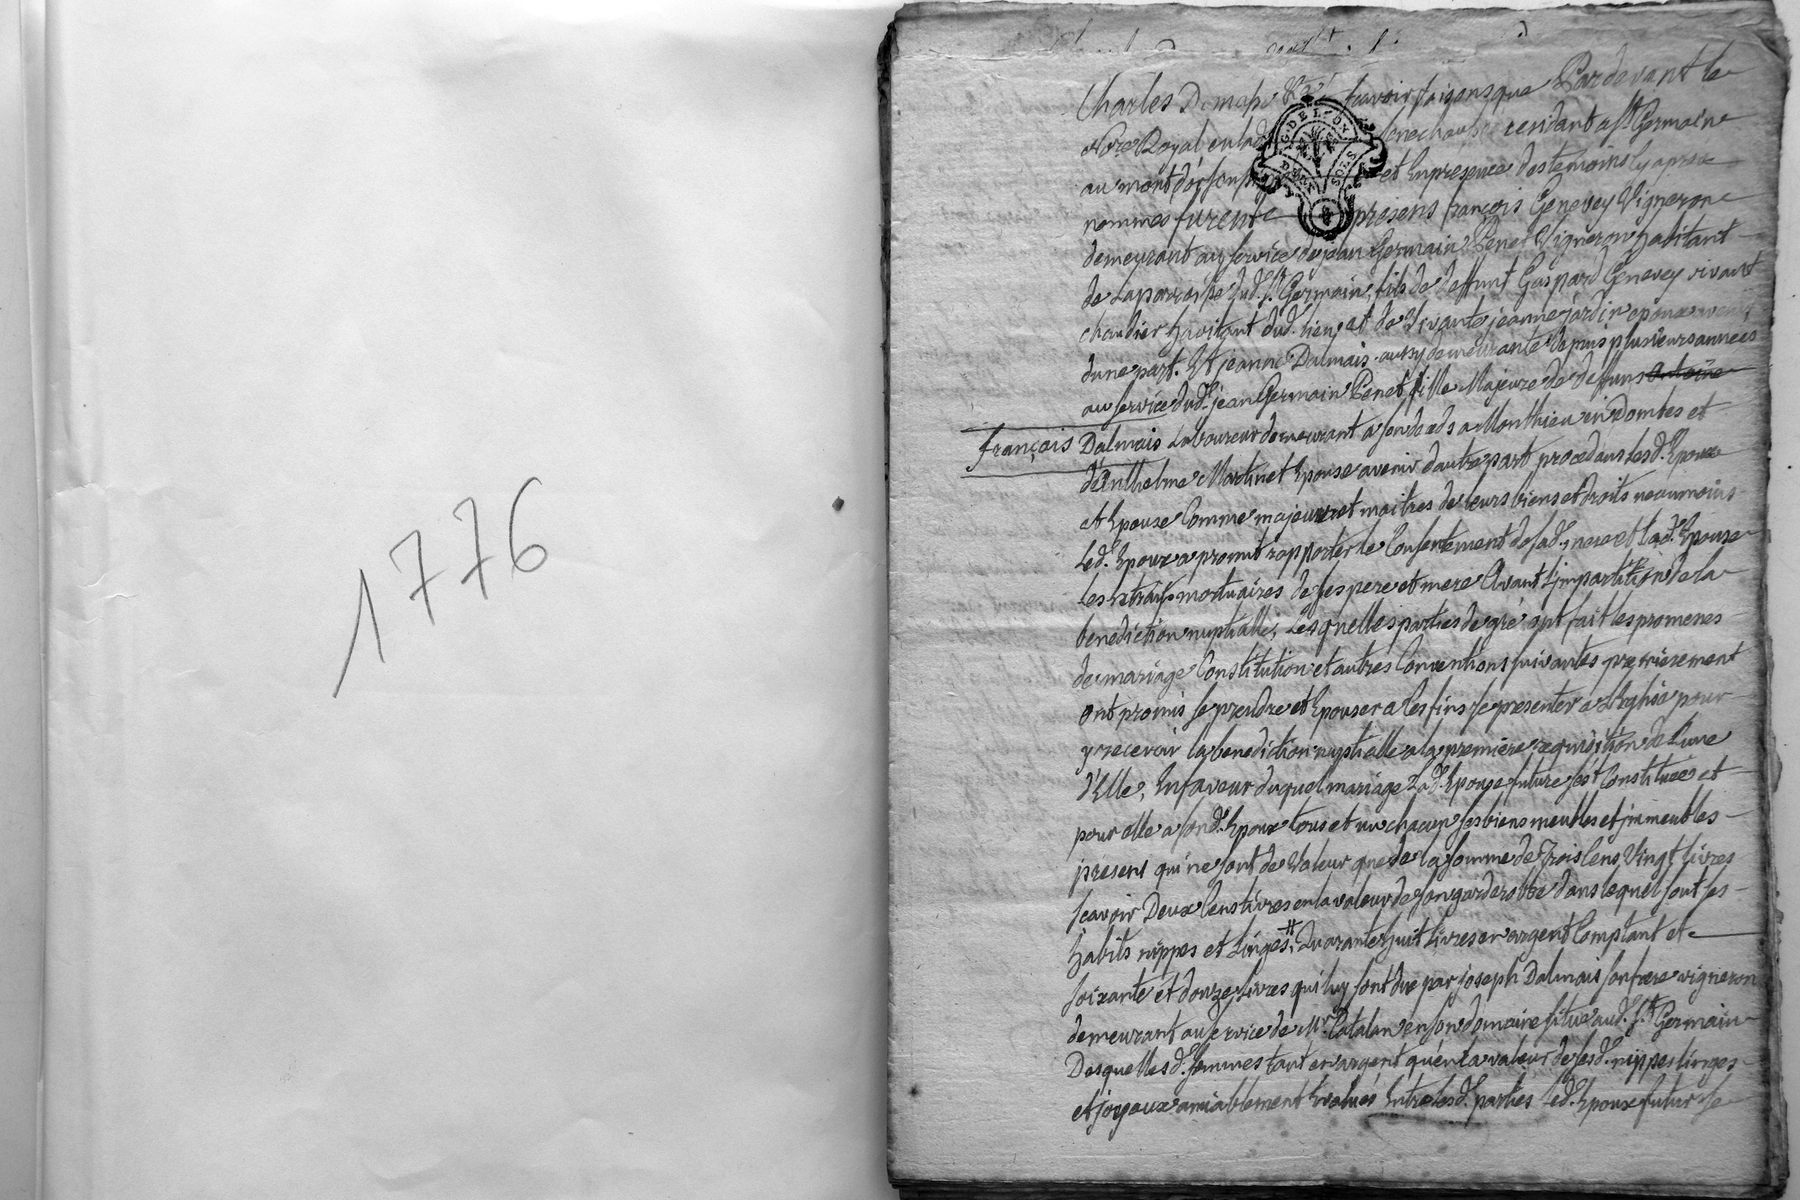 1776
Charles Demah scavoir faisons que Pardevant le
Nore Royal en lad senechau residant a St Germain
au mont d'or et En presence des temoins cy apres
nommes furent presens françois Genevey Vigneron
demeurant au service de jean Germain Penet Vigneron habitant
de La paroisse dud. St Germain, fils de deffunt Gaspard Genevey vivant
habitant dud. lieu, et de Vivante jeanne jardin epoux avenir
dune part. Et jeanne Dalmais aussy demeurante depuis plusieurs années
au service dud. jean Germain Penet fille Majeure de deffuns Antoine
françois Dalmais Laboureur demeurant a son deceds a Monthieu en Dombes et
d'Enthelme Martinet Epouse avenir dautre part procedans Lesd. Epoux
et Epouse Comme majeurs et maitres de leurs biens et droits neanmoins
Led. Epoux a promit rapporter le Consentement de sad. mere et lad. Epouse
Les Extraits mortuaires de ses pere et mere Avant Limpartition de la
benediction nuptialle, Lesquelles parties de gré ont fait les promesses
de mariage Constitution et autres Conventions suivantes premierement
ont promis se prendre et Epouser a Ces fins se presenter a L'Eglise pour
y recevoir la benediction nuptialle a la premiere requisition de L'une
d'Elle, En faveur duquel mariage Lad. Epouse future sest Constituee et
pour elle a sond. Epoux tous et un chacun ses biens meubles et jmmeubles
present qui ne sont de Valeur que de la somme de Trois Cens Vingt Livres
scavoir Deux Cens Livres en la valeur de son garderobbe dans lequel sont ses
habits nippes et Linges, # Quarante huit Livres en argent Comptant et
soixante et douze Livres qui luy sont due par joseph Dalmais son frere vigneron
demeurant au service de Mr Catalan en son domaine situé aud. St Germain
Desquelles d. sommes tant en argent qu'en la valeur de sesd. nippes linges
et joyaux amiablement Evalués Entre lesd. parties Led. Epoux futur se